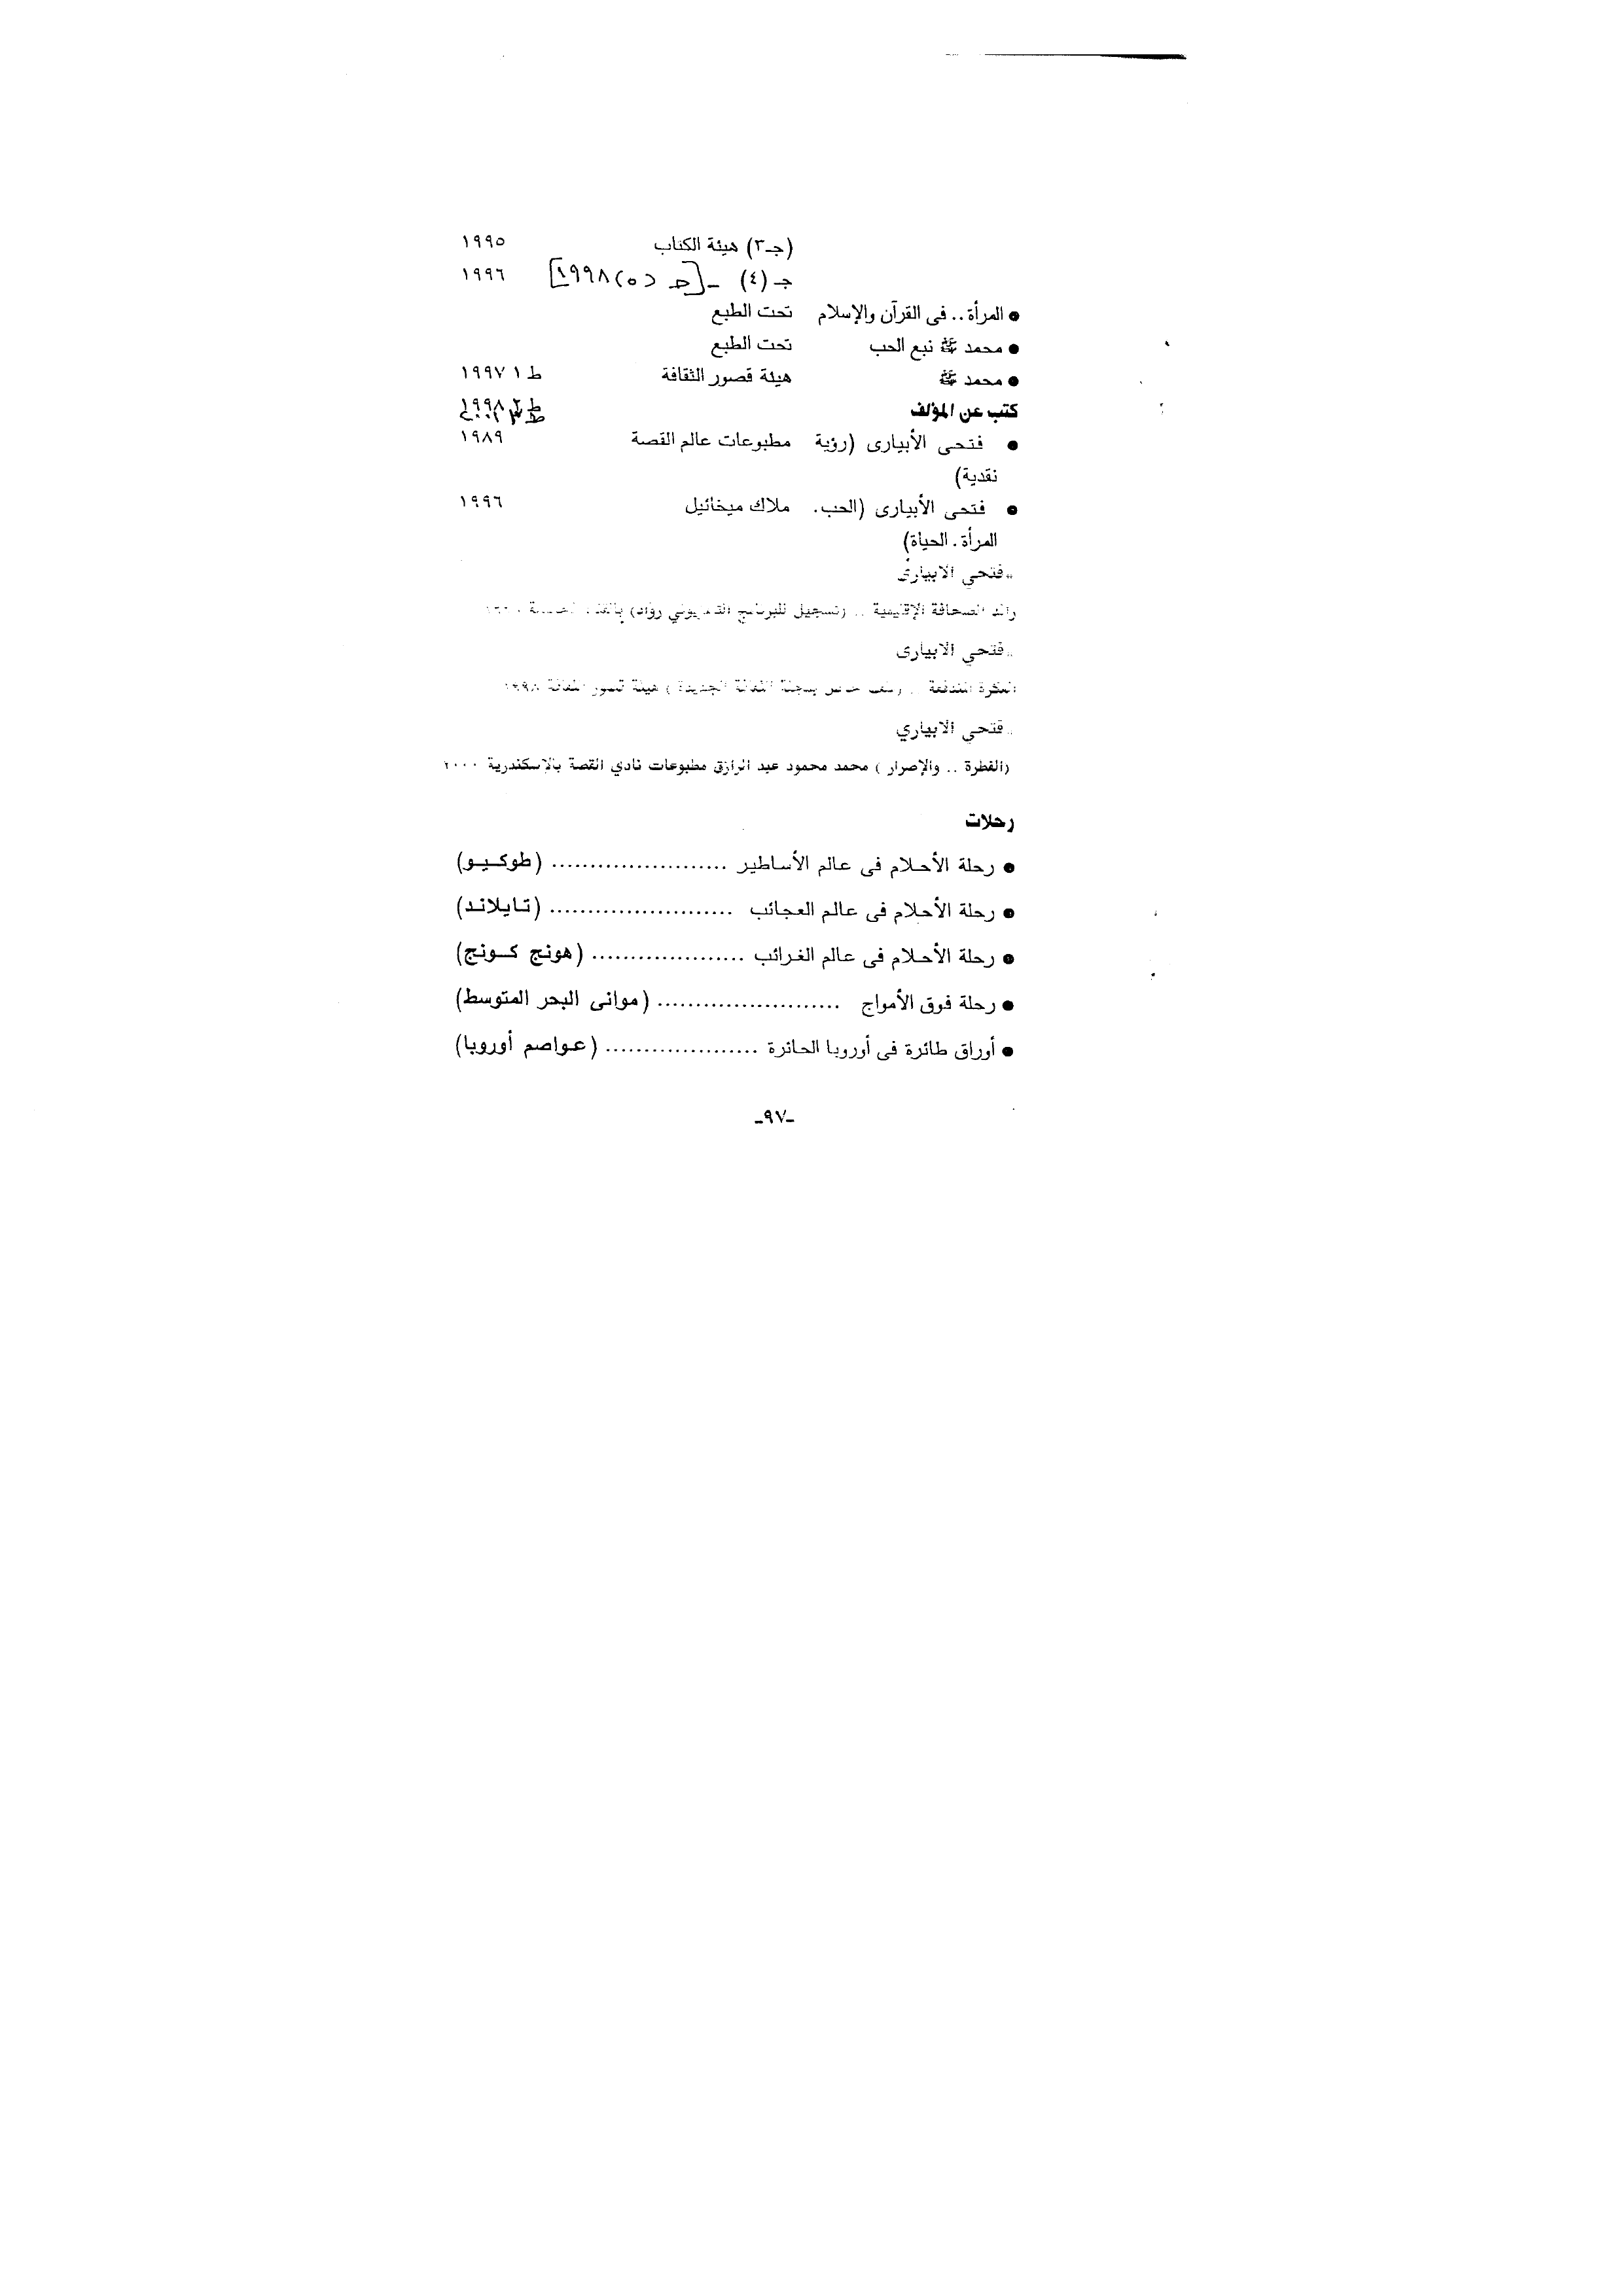 (جـ٣) هيئة الكتاب ١٩٩٥
جـ (٤) - [جـ (٥) ١٩٩٨] ١٩٩٦
● المرأة .. فى القرآن والإسلام تحت الطبع
● محمد ﷺ نبع الحب تحت الطبع
● محمد ﷺ هيئة قصور الثقافة ط ١ ١٩٩٧
كتب عن المؤلف ط ٢ ١٩٩٨
● فتحى الأبيارى (رؤية مطبوعات عالم القصة ١٩٨٩
نقدية)
● فتحى الأبيارى (الحب. ملاك ميخائيل ١٩٩٦
المرأة. الحياة)
.. فتحي الابيارى
رائد الصحافة الإقليمية .. (تسجيل للبرنامج رواد)
.. فتحي الابيارى
هيئة قصور الثقافة ١٩٩٨
.. فتحي الابياري
(الفطرة .. والإصرار ) محمد محمود عبد الرازق مطبوعات نادي القصة بالاسكندرية ٢٠٠٠
رحلات
● رحلة الأحلام فى عالم الأساطير ....................... (طوكيو)
● رحلة الأحلام فى عالم العجائب ........................ (تايلاند)
● رحلة الأحلام فى عالم الغرائب .................... (هونج كونج)
● رحلة فوق الأمواج ........................ (موانى البحر المتوسط)
● أوراق طائرة فى أوروبا الحائرة .................... (عواصم أوروبا)
-٩٧-